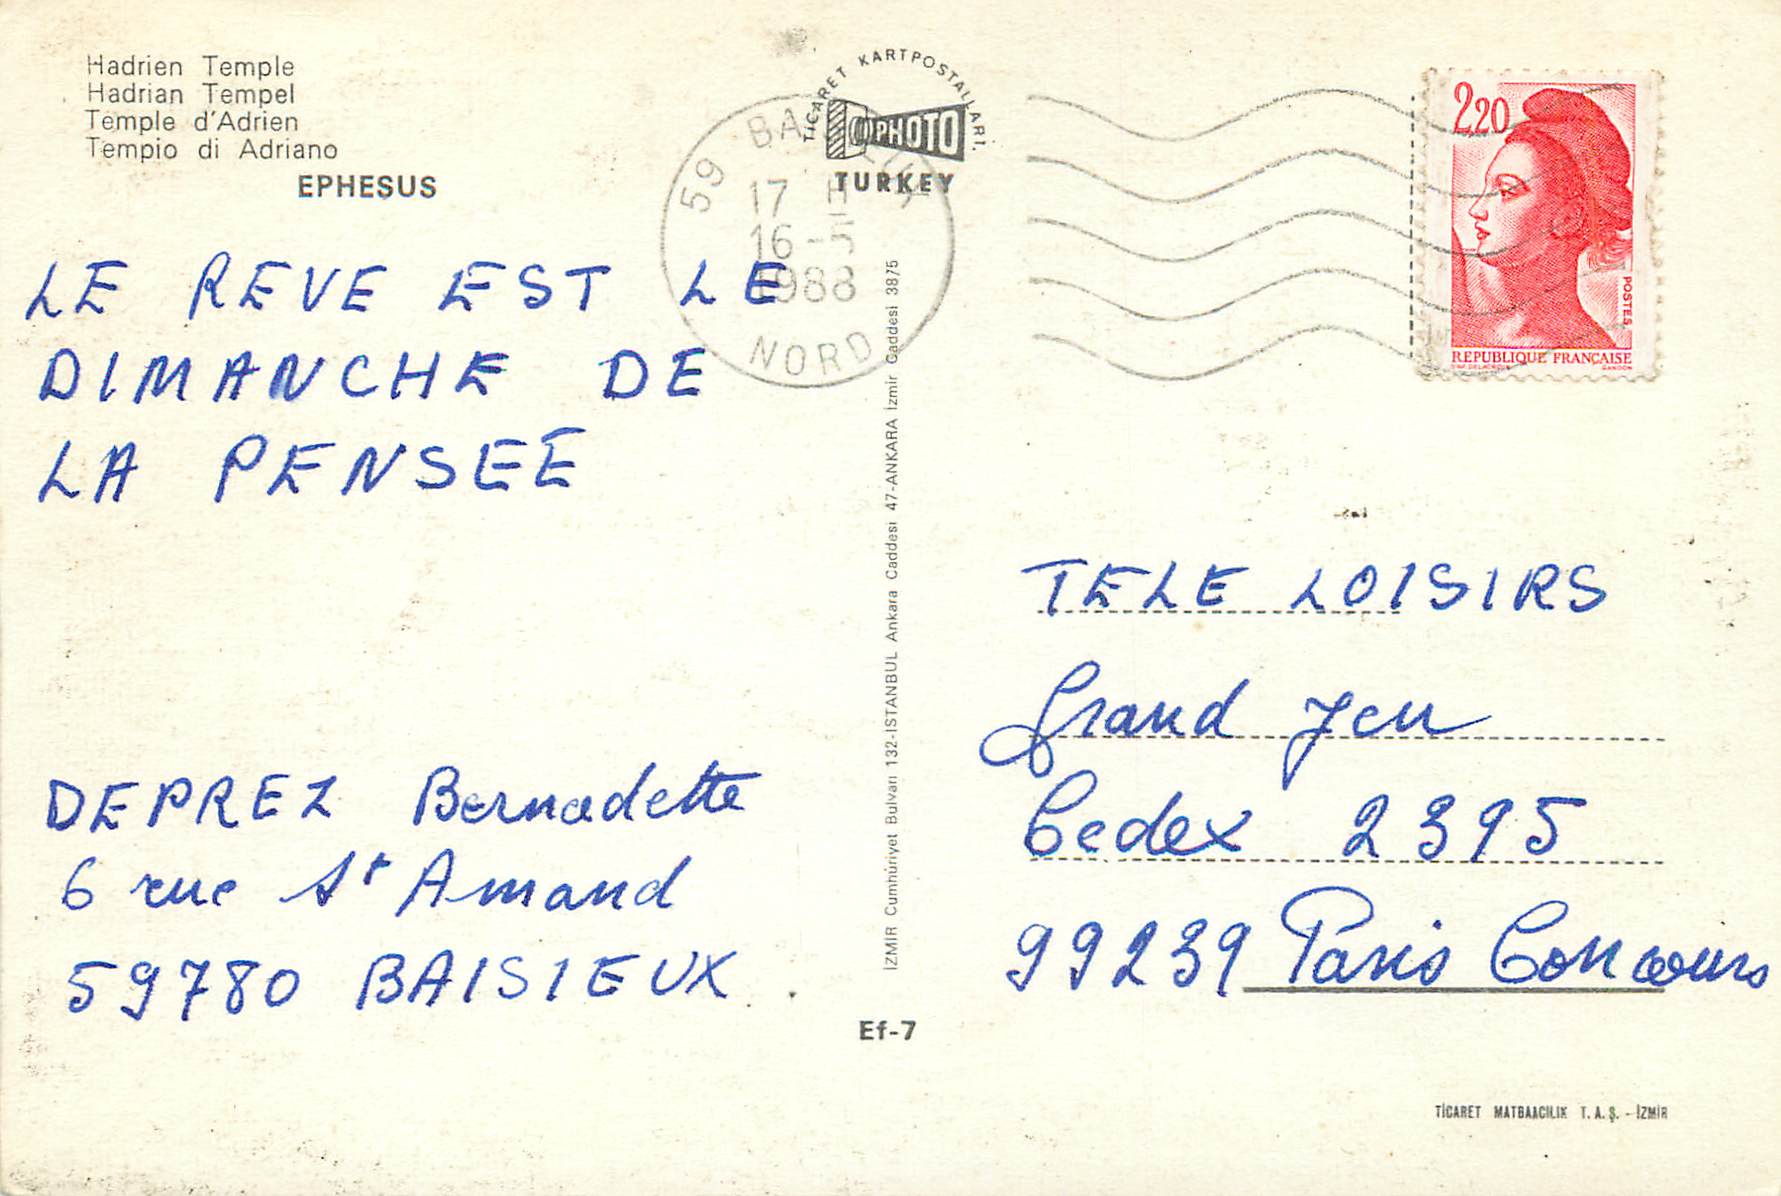 Hadrien Temple
Hadrian Tempel
Temple d'Adrien
Tempio di Adriano
EPHESUS
TİCARET KARTPOSTALLARI.
PHOTO
TURKEY
59 BA
17 H
16-5
1988
NORD
2,20
POSTES
REPUBLIQUE FRANÇAISE
D'AP. DELACROIX GANDON
LE REVE EST LE
DIMANCHE DE
LA PENSEE
DEPREZ Bernadette
6 rue St Amand
59780 BAISIEUX
İZMİR Cumhuriyet Bulvarı 132-İSTANBUL Ankara Caddesi 47-ANKARA İzmir Caddesi 3875
Ef-7
TELE LOISIRS
Grand Jeu
Cedex 2395
99239 Paris Concours
TİCARET MATBAACILIK T.A.Ş. - İZMİR